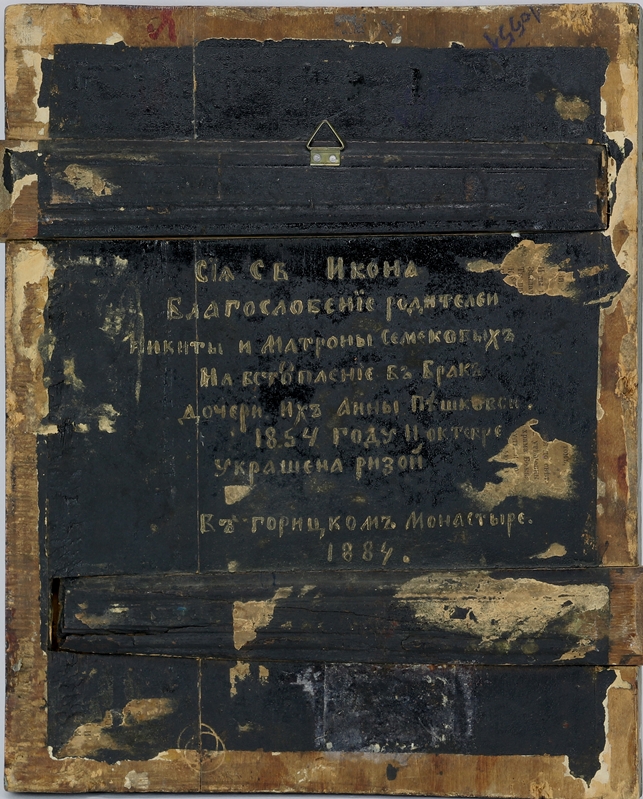 10551
Сіѧ СВ Икона
Благословеніе родителеи
Никиты и Матроны Семековыхъ
На встѹпленіе въ Бракъ
дочери ихъ Анны Пѹшковои.
1854 году 11 октѧбре
украшена ризой
Въ горицкомъ Монастыре.
1884.